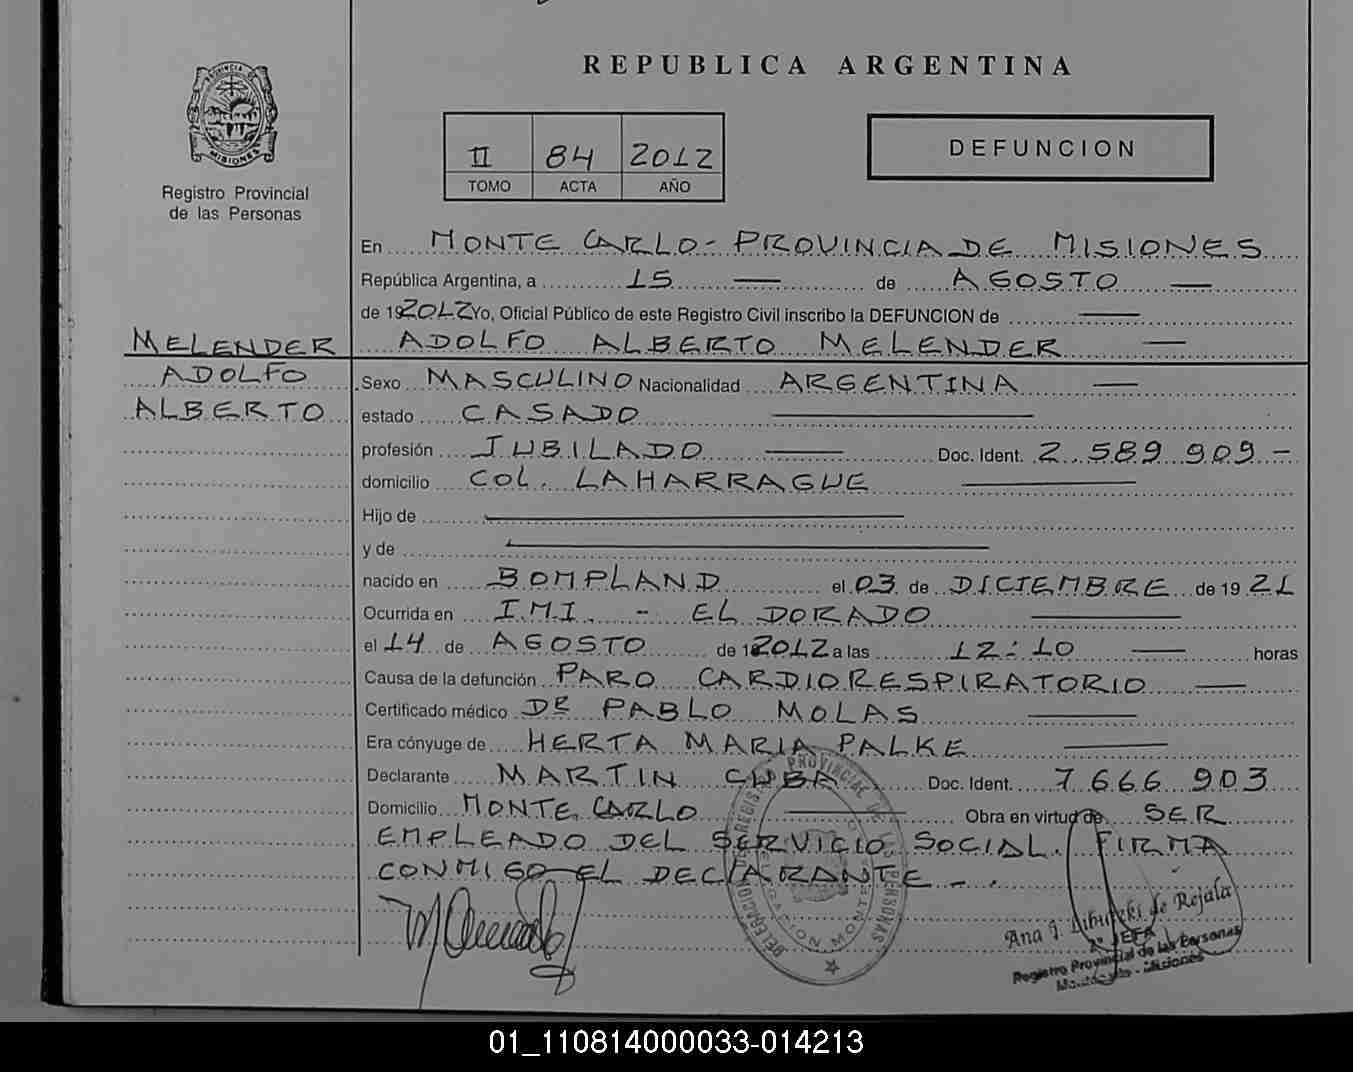 REPUBLICA ARGENTINA
PROVINCIA DE
MISIONES
Registro Provincial
de las Personas
II 84 2012
TOMO ACTA AÑO
DEFUNCION
En MONTE CARLO - PROVINCIA DE MISIONES
República Argentina, a 15 — de AGOSTO —
de 192012 Yo, Oficial Público de este Registro Civil inscribo la DEFUNCION de —
MELENDER
ADOLFO ALBERTO MELENDER —
ADOLFO
ALBERTO
Sexo MASCULINO Nacionalidad ARGENTINA —
estado CASADO —
profesión JUBILADO — Doc. Ident. 2.589.909 -
domicilio COL. LAHARRAGUE —
Hijo de —
y de —
nacido en BOMPLAND el 03 de DICIEMBRE de 1921
Ocurrida en I.M.I. - EL DORADO —
el 14 de AGOSTO de 12012 a las 12:10 — horas
Causa de la defunción PARO CARDIORESPIRATORIO —
Certificado médico DR PABLO MOLAS —
Era cónyuge de HERTA MARIA PALKE —
Declarante MARTIN CUBA Doc. Ident. 7.666.903
Domicilio MONTE CARLO — Obra en virtud de SER
EMPLEADO DEL SERVICIO SOCIAL. FIRMA
CONMIGO EL DECLARANTE - .
PROVINCIAL DE LAS PERSONAS
Ana de Rejala
JEFA
Registro Provincial de las Personas
Misiones
01_110814000033-014213